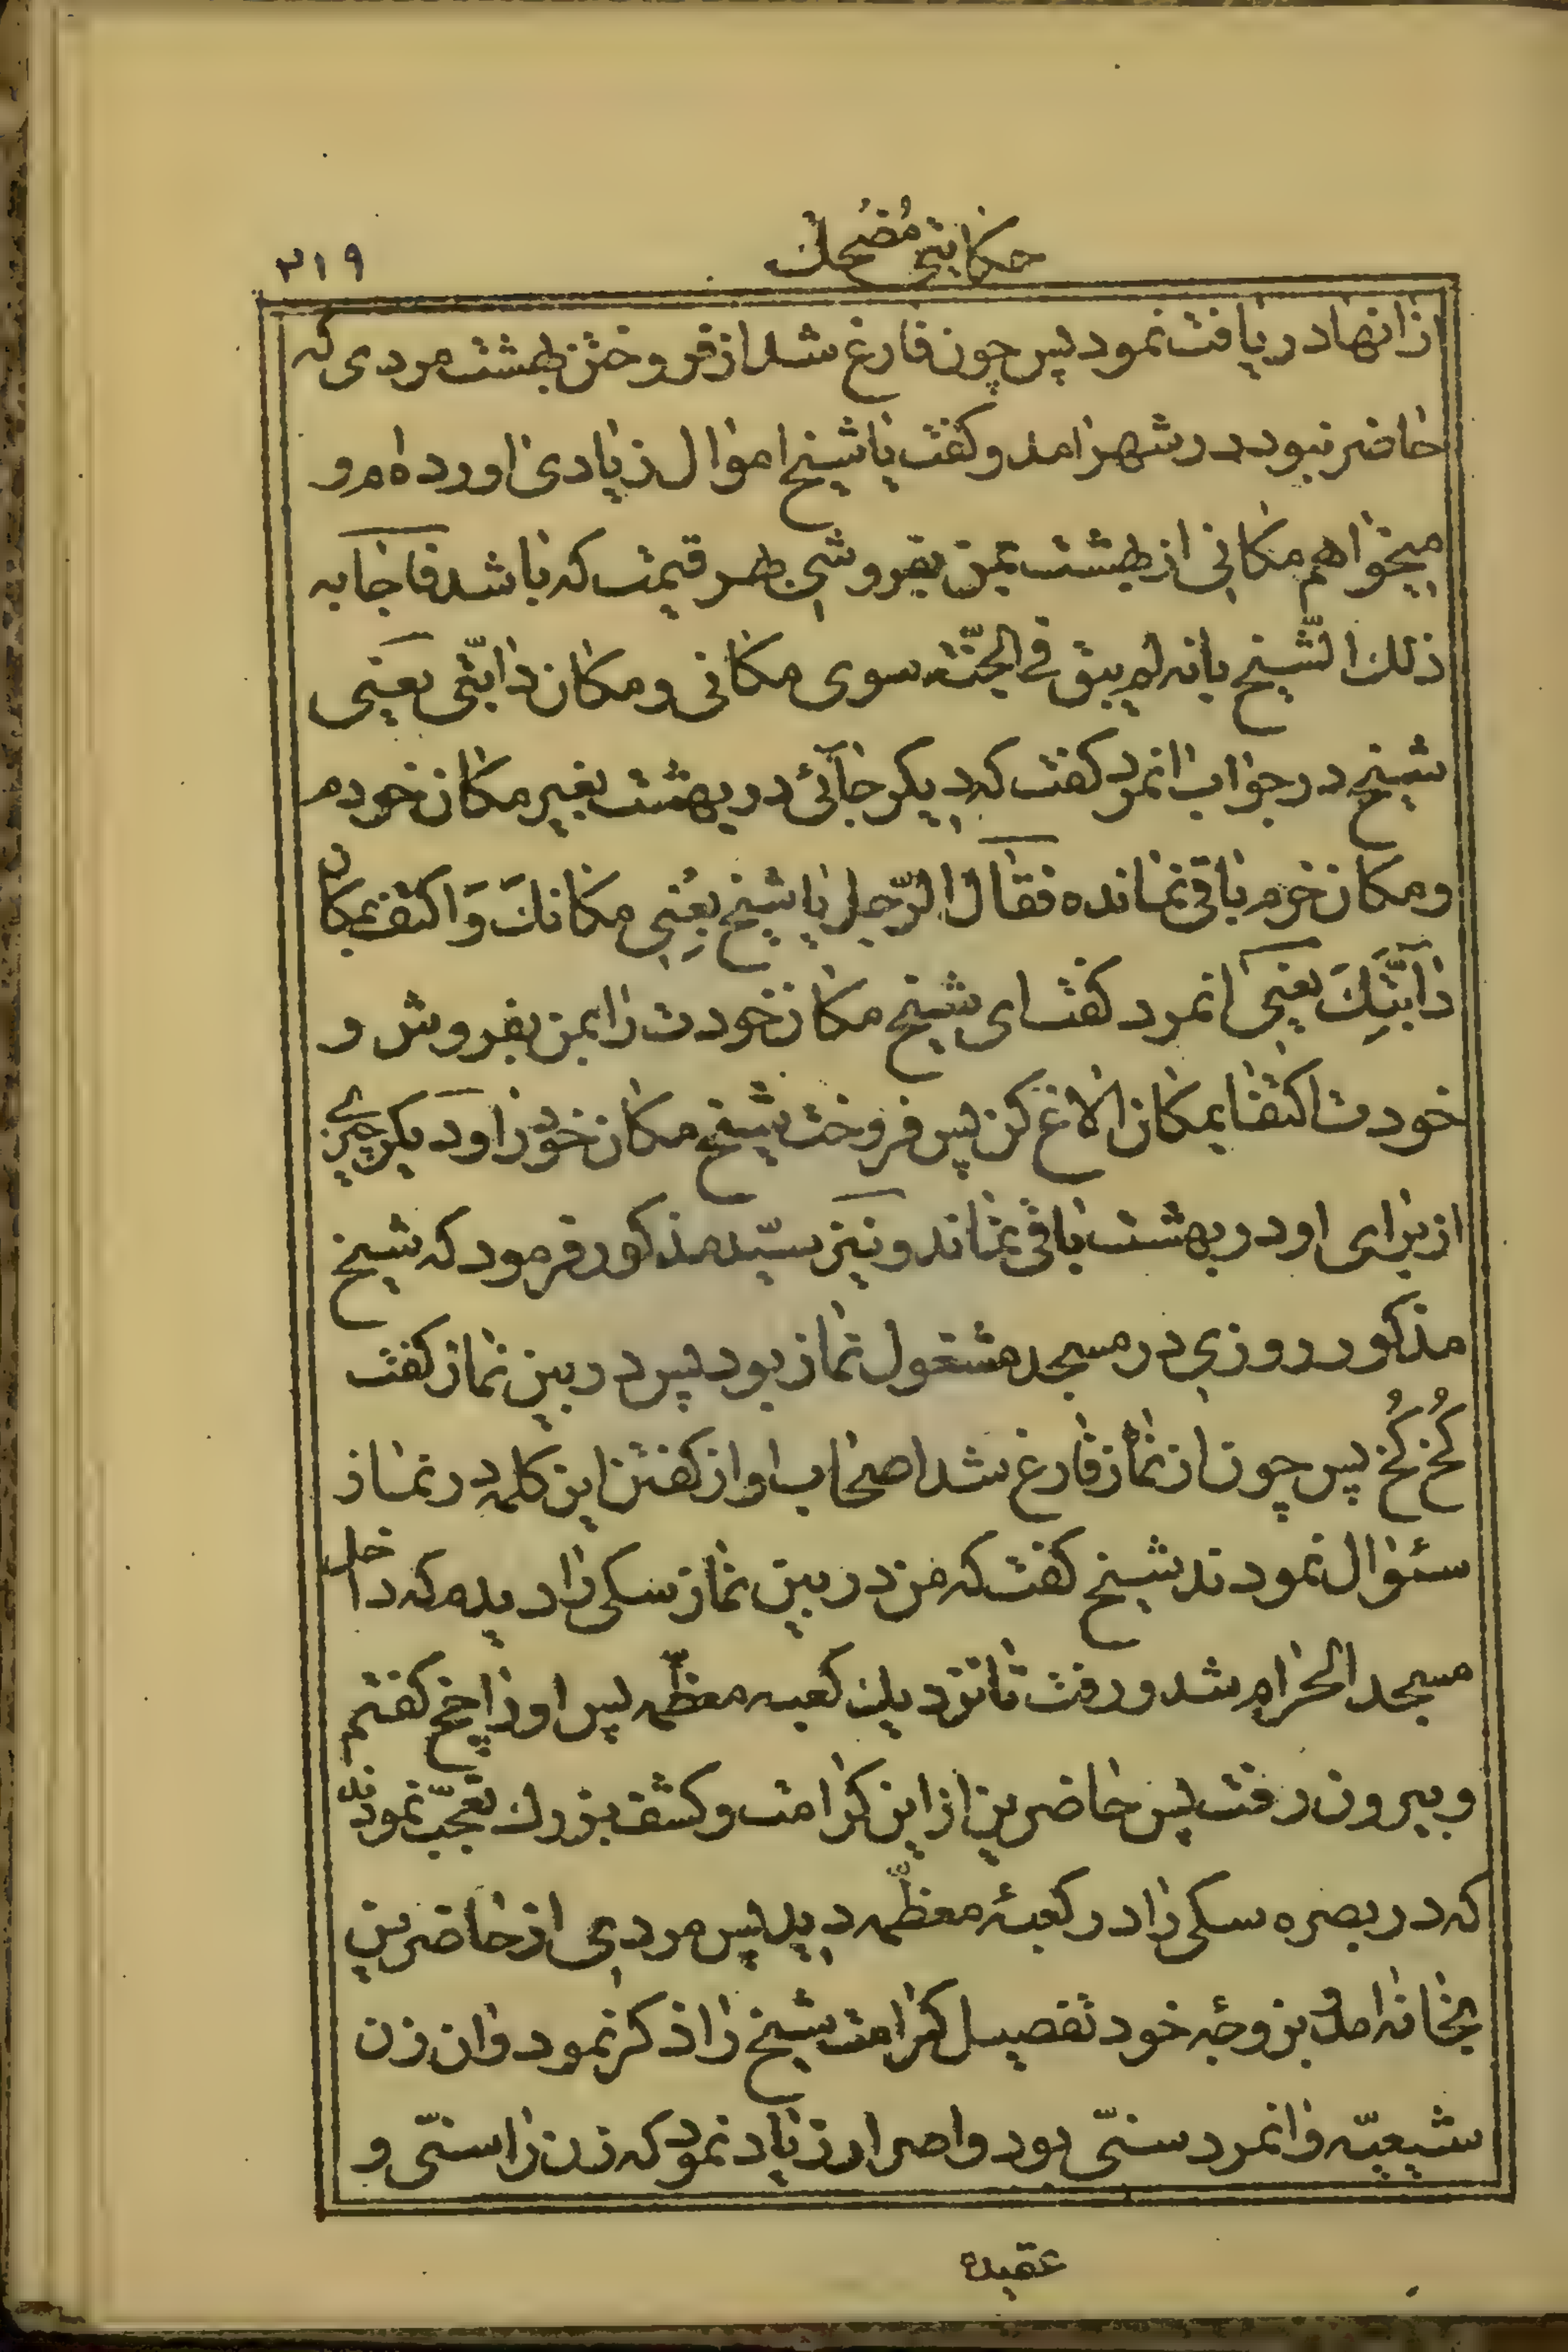 حکایتی مُضْحِك
۳۱۹
ازانها دریافت نمود پس چون فارغ شد از فروختن بهشت مردی که
حاضر نبود در شهر امد و کفت یا شیخ اموال زیادی اورده‌ام و
میخواهم مکانی از بهشت بمن بفروشی بهر قیمت که باشد فاجابه
ذلك الشّیخ بانه لم یبق فی الجنّة سوی مکانی و مکان دابّتی یعنی
شیخ در جواب انمرد کفت که دیکر جائی در بهشت بغیر مکان خودم
و مکان خرم باقی نمانده فقال الرّجل یا شیخ بِعْنِی مکانكَ وَ اکتف بمکان
دَابَّتِكَ یعنی انمرد کفت ای شیخ مکان خودت را بمن بفروش و
خودت اکتفا بمکان الاغ کن پس فروخت شیخ مکان خود را و دیکر چیزی
از برای او در بهشت باقی نماند و نیز سیّد مذکور فرمود که شیخ
مذکور روزی در مسجد مشغول نماز بود پس در بین نماز کفت
کُخْ کُخْ پس چون از نماز فارغ شد اصحاب او از کفتن این کلمه در نماز
سئوال نمودند شیخ کفت که من در بین نماز سکی را دیدم که داخل
مسجد الحرام شد و رفت تا نزدیك کعبه معظّمه پس او را چخ کفتم
و بیرون رفت پس حاضرین از این کرامت و کشف بزرك تعجّب نمودند
که در بصره سکی را در کعبهٔ معظّمه دید پس مردی از حاضرین
بخانه امد و بزوجه خود تفصیل کرامت شیخ را ذکر نمود و ان زن
شیعیّه و انمرد سنّی بود و اصرار زیاد نمود که زن را سنّی و
عقیده